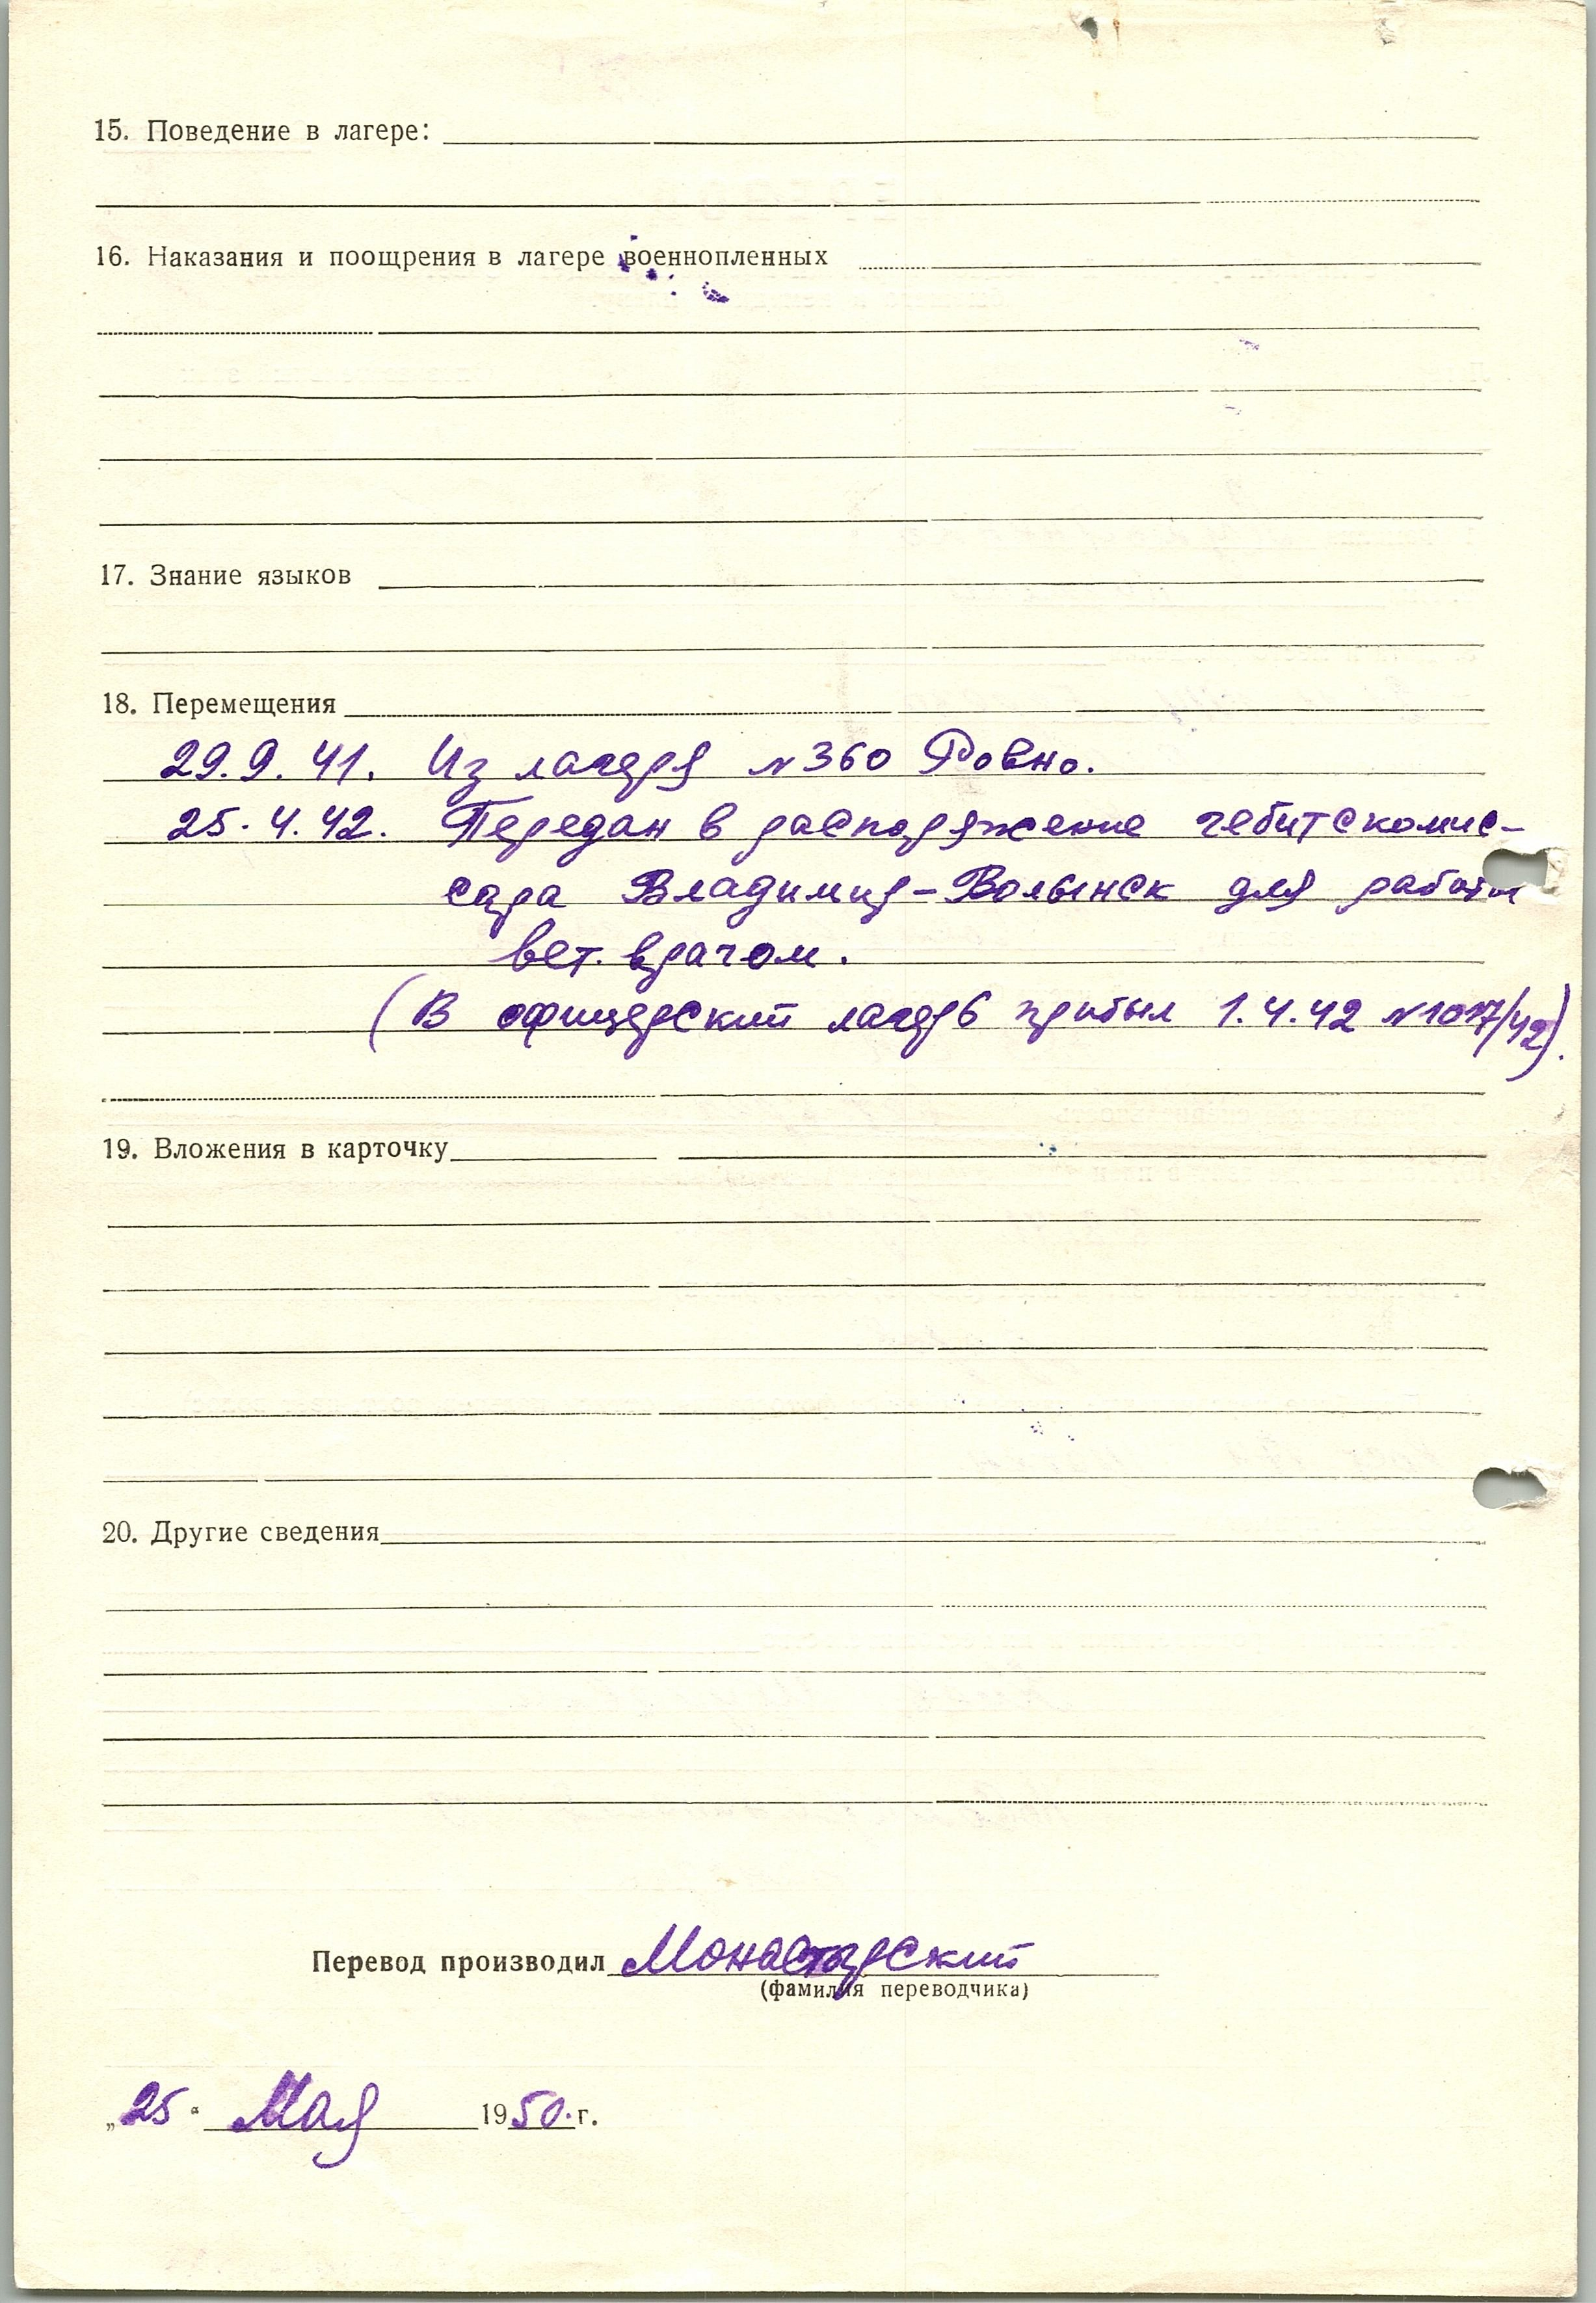 15. Поведение в лагере:
16. Наказания и поощрения в лагере военнопленных
17. Знание языков
18. Перемещения
29.9.41. Из лагеря №360 Ровно.
25.4.42. Передан в распоряжение гебитскомис-
сара Владимир-Волынск для работы
вет. врачом.
(В офицерский лагерь прибыл 1.4.42 №1017/42).
19. Вложения в карточку
20. Другие сведения
Перевод производил Монастырский
(фамилия переводчика)
„25“ Мая 1950.г.